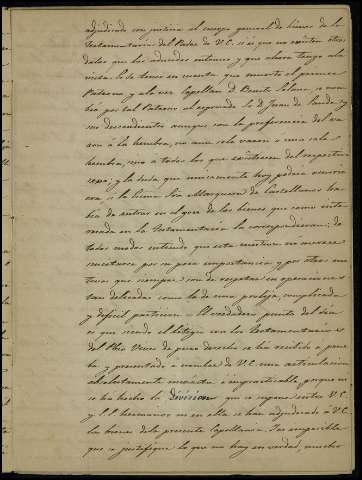 adjudicado con justicia al cuerpo general de bienes de la
Testamentaría del Padre de V.C. si es que no existen otros
datos que los aducidos entonces y que ahora tengo a la
vista. Si se tiene en cuenta que muerto el primer
Patrono y a la vez Capellan D. Benito Solano, se nom-
bró por tal Patrono al segundo lo D. Juan de y
sus descendientes aunque con la preferencia del va-
ron á la hembra, no a un solo varon ó una sola
hembra, sino a todos los que existiesen del respectivo
sexo; y la duda que unicamente hoy podria ocurrir
era si la Señora Marquesa de Castellanos ha-
bia de entrar en el goce de los bienes que como inte-
resada en la Testamentaría la correspondieran: de
todos modos entiendo que esta cuestion no merece
suscitarse por su poca importancia y por otros mo-
tivos que siempre son de respetar en operaciones
tan delicadas como la de una prolija, complicada
y dificil particion. = El verdadero punto del dia
es que siendo el litigio con los Testamentarios
del Pbro de puro derecho se ha recibido a prue-
ba, y presentado a nombre de V.C. una articulacion
absolutamente inexacta é impracticable, porque ni
se ha hecho la Division que se supone entre V.C.
y S.S. hermanos ni en ella se han adjudicado á V.C.
los bienes de la presente Capellanía. Tan inasequible
que se justifique lo que no hay en verdad, mucho